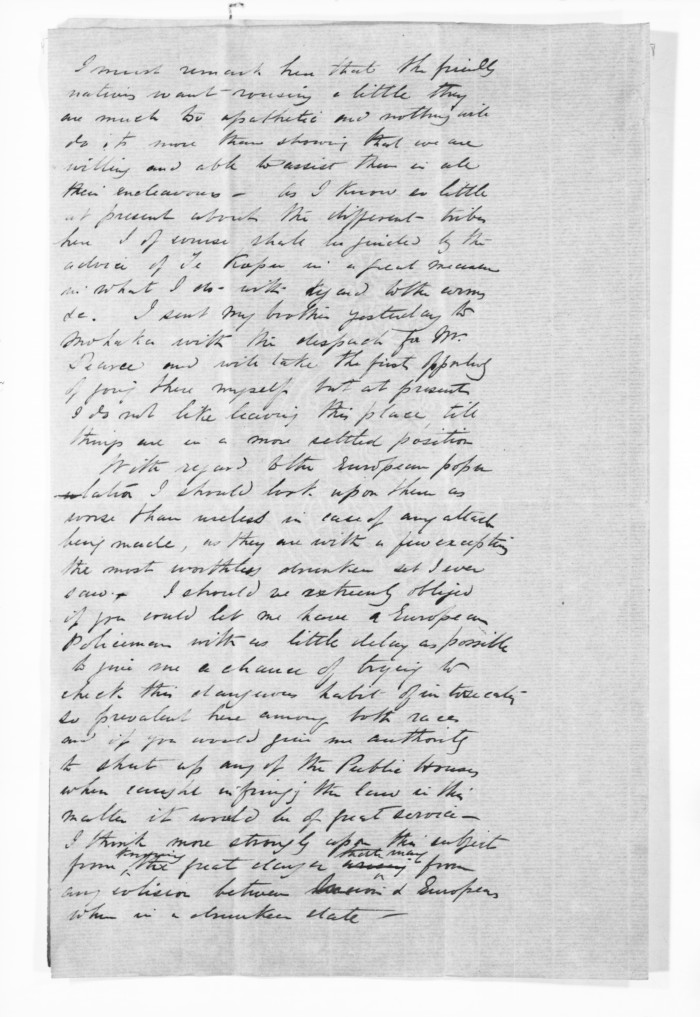 I must remark here that the friendly
natives want rousing a little they
are much to apathetic and nothing will
do it more than showing that we are
willing and able to assist them in all
their endeavours – As I know so little
at present about the different tribes
here I of course shall be guided by the
advice of Te Kopu in a great measure
in what I do – with regard to the arms
&c. I sent my brother yesterday to
Mohaka with the despatch for Mr.
Pearce and will take the first opportunity
of going there myself but at present
I do not like leaving this place till
things are in a more settled position
With regard to the European popu
lation I should look upon them as
worse than useless in case of any attack
being made, as they are with a few exceptions
the most worthless drunken set I ever
saw – I should be extremely obliged
if you could let me have a European
Policeman with as little delay as possible
to give me a chance of trying to
check this dangerous habit of intoxication
so prevalent here among both races
and if you would give me authority
to shut up any of the Public Houses
when caught infringing the law in this
matter it would be of great service –
I think more strongly upon this subject
from knowing the great danger arising that may from
any collision between & Europeans
when in a drunken state –